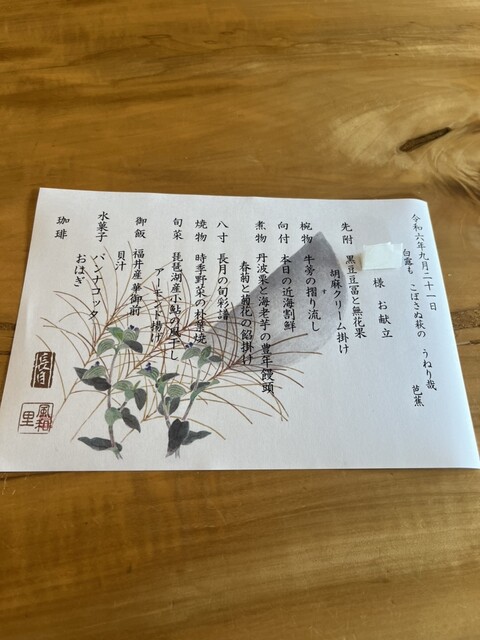 令和六年九月二十一日
白露も　こぼさぬ萩の　うねり哉　芭蕉
様　お献立
先附　黒豆豆冨と無花果
胡麻クリーム掛け
椀物　牛蒡の摺り流し
す
向付　本日の近海割鮮
煮物　丹波栗と海老芋の豊年饅頭
春菊と菊花の餡掛け
八寸　長月の旬彩譜
焼物　時季野菜の朴葉焼
旬菜　琵琶湖産小鮎の風干し
アーモンド揚げ
御飯　福井産華御前
貝汁
水菓子　パンナコッタ
おはぎ
珈琲
長月
風和里